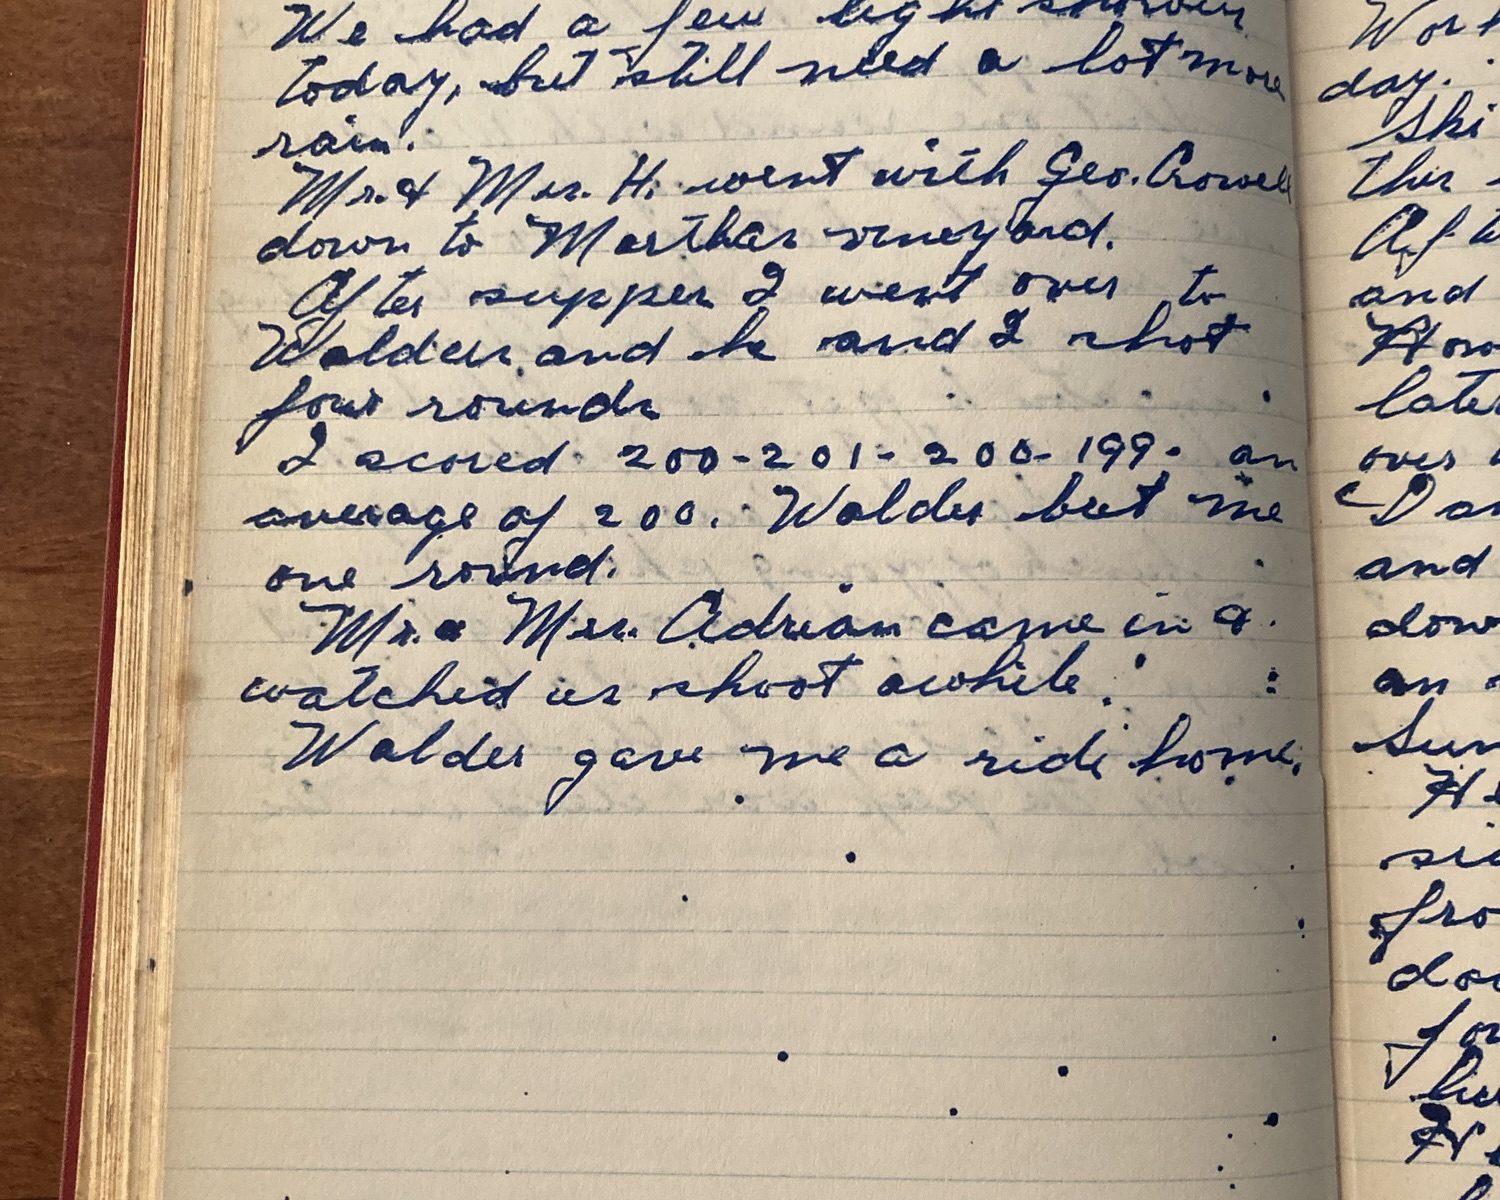 We had a few light showers
today, but still need a lot more
rain.
Mr. & Mrs. H. went with Geo. Crowell
down to Marthas vineyard.
After supper I went over to
Walders and he and I shot
four rounds
I scored 200-201-200-199. an
average of 200. Walder beet me
one round.
Mr. & Mrs. Adrian came in &
watched us shoot awhile.
Walder gave me a ride home.
Wor
day.
Ski
this
Aft
and
How
later
over
Dan
and
down
an
Sun
He
sid
fro
doo
for
hu
He